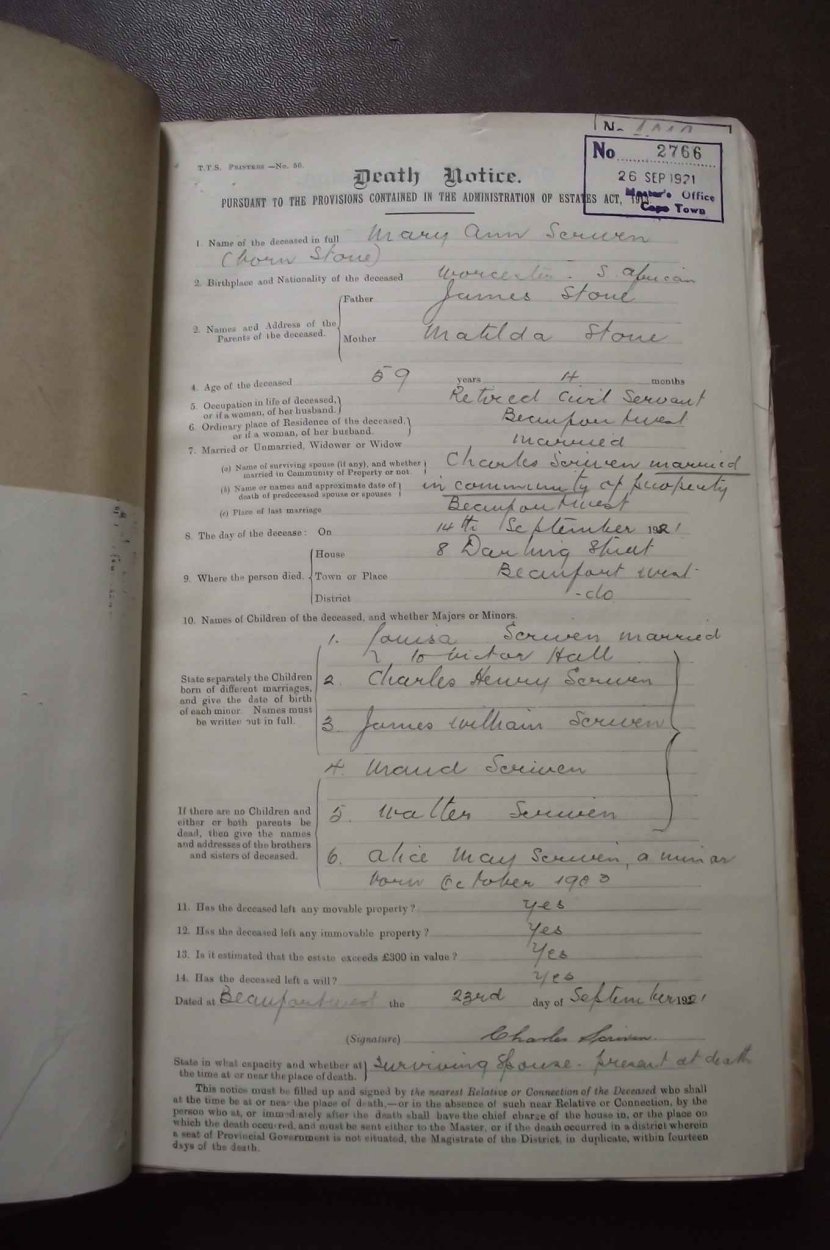 T.T.S. PRINTERS —No. 50.
No
No 2766
26 SEP 1921
Master's Office
Cape Town
Death Notice.
PURSUANT TO THE PROVISIONS CONTAINED IN THE ADMINISTRATION OF ESTATES ACT, 1913.
1. Name of the deceased in full Mary Ann Scriven
(born Stone)
2. Birthplace and Nationality of the deceased Worcester. S. African
3. Names and Address of the Parents of the deceased. Father James Stone
Mother Matilda Stone
4. Age of the deceased 59 years 4 months
5. Occupation in life of deceased, or if a woman, of her husband. Retired Civil Servant
6. Ordinary place of Residence of the deceased, or if a woman, of her husband. Beaufort West
7. Married or Unmarried, Widower or Widow married
(a) Name of surviving spouse (if any), and whether married in Community of Property or not Charles Scriven married
(b) Name or names and approximate date of death of predeceased spouse or spouses in community of property
(c) Place of last marriage Beaufort West
8. The day of the decease: On 14th September 1921
9. Where the person died. House 8 Darling Street
Town or Place Beaufort West
District -do
10. Names of Children of the deceased, and whether Majors or Minors.
State separately the Children born of different marriages, and give the date of birth of each minor. Names must be written out in full.
1. Louisa Scriven married
to Victor Hall
2. Charles Henry Scriven
3. James William Scriven
4. Maud Scriven
If there are no Children and either or both parents be dead, then give the names and addresses of the brothers and sisters of deceased.
5. Walter Scriven
6. Alice May Scriven, a minor
born October 1903
11. Has the deceased left any movable property? yes
12. Has the deceased left any immovable property? yes
13. Is it estimated that the estate exceeds £300 in value? yes
14. Has the deceased left a will? yes
Dated at Beaufort West the 23rd day of September 1921
(Signature) Charles Scriven.
State in what capacity and whether at the time at or near the place of death. Surviving Spouse. present at death
This notice must be filled up and signed by the nearest Relative or Connection of the Deceased who shall
at the time be at or near the place of death,—or in the absence of such near Relative or Connection, by the
person who at, or immediately after the death shall have the chief charge of the house in, or the place on
which the death occurred, and must be sent either to the Master, or if the death occurred in a district wherein
a seat of Provincial Government is not situated, the Magistrate of the District, in duplicate, within fourteen
days of the death.